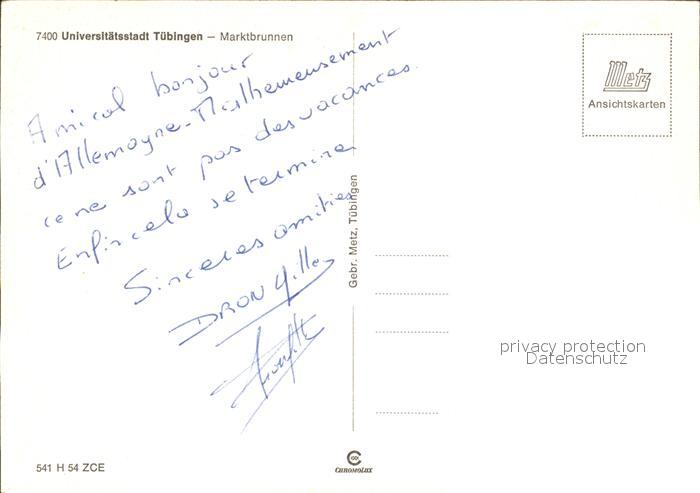 7400 Universitätsstadt Tübingen – Marktbrunnen
Metz
Ansichtskarten
Amical bonjour
d'Allemagne - Malheureusement
ce ne sont pas des vacances.
Enfin cela se termine
Sincères amitiés
DRON Gilles
Gebr. Metz, Tübingen
privacy protection
Datenschutz
541 H 54 ZCE
CHROMOLUX